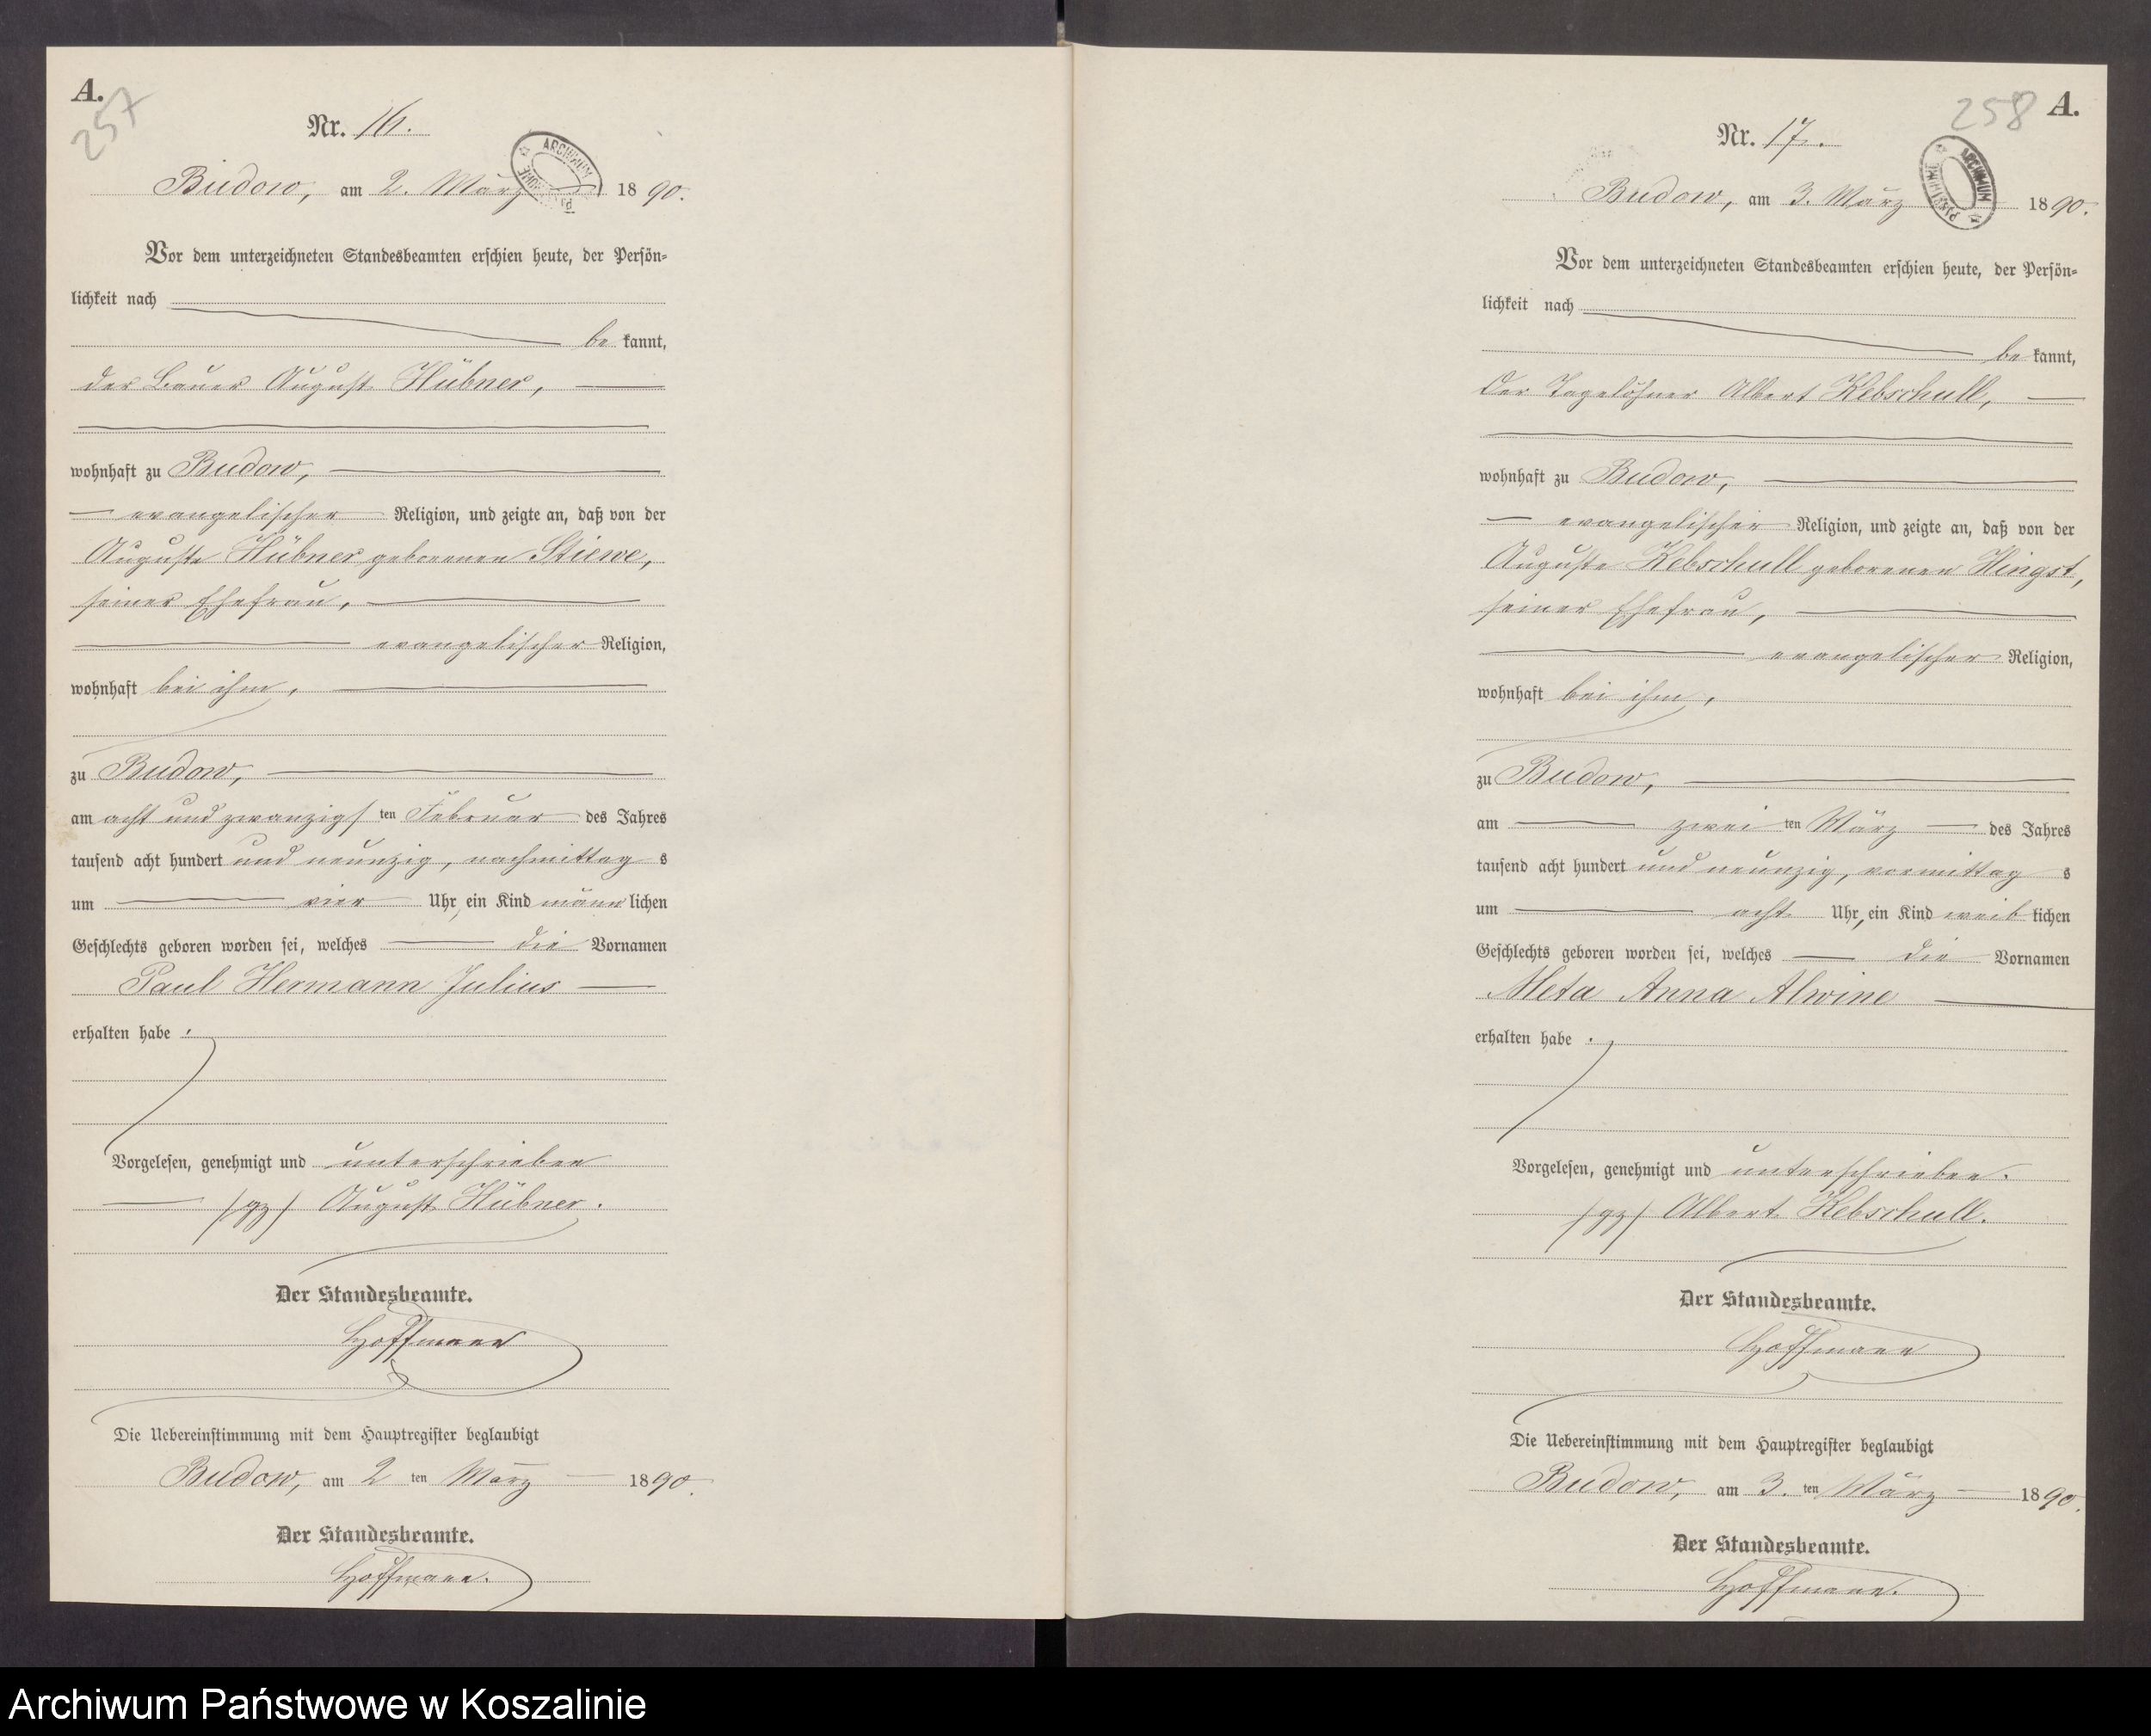 A.
257
Nr. 16.
ARCHIWUM
Budow, am 2. März 1890.
Vor dem unterzeichneten Standesbeamten erschien heute, der Persön-
lichkeit nach
be kannt,
der Bauer August Hübner,
wohnhaft zu Budow,
evangelischer Religion, und zeigte an, daß von der
Auguste Hübner geborenen Stiewe,
seiner Ehefrau,
evangelischer Religion,
wohnhaft bei ihm,
zu Budow,
am acht und zwanzigsten Februar des Jahres
tausend acht hundert und neunzig, nachmittags
um vier Uhr, ein Kind männlichen
Geschlechts geboren worden sei, welches die Vornamen
Paul Hermann Julius
erhalten habe.
Vorgelesen, genehmigt und unterschrieben
(gz) August Hübner.
Der Standesbeamte.
Hoffmann
Die Uebereinstimmung mit dem Hauptregister beglaubigt
Budow, am 2ten März 1890.
Der Standesbeamte.
Hoffmann.
258
A.
Nr. 17.
ARCHIWUM
PAŃSTWOWE
Budow, am 3. März 1890.
Vor dem unterzeichneten Standesbeamten erschien heute, der Persön-
lichkeit nach
be kannt,
der Tagelöhner Albert Kebschull,
wohnhaft zu Budow,
evangelischer Religion, und zeigte an, daß von der
Auguste Kebschull geborenen Hingst,
seiner Ehefrau,
evangelischer Religion,
wohnhaft bei ihm,
zu Budow,
am zweiten März des Jahres
tausend acht hundert und neunzig, vormittags
um acht Uhr, ein Kind weiblichen
Geschlechts geboren worden sei, welches die Vornamen
Meta Anna Alwine
erhalten habe.
Vorgelesen, genehmigt und unterschrieben.
(gz) Albert Kebschull.
Der Standesbeamte.
Hoffmann
Die Uebereinstimmung mit dem Hauptregister beglaubigt
Budow, am 3.ten März 1890.
Der Standesbeamte.
Hoffmann.
Archiwum Państwowe w Koszalinie